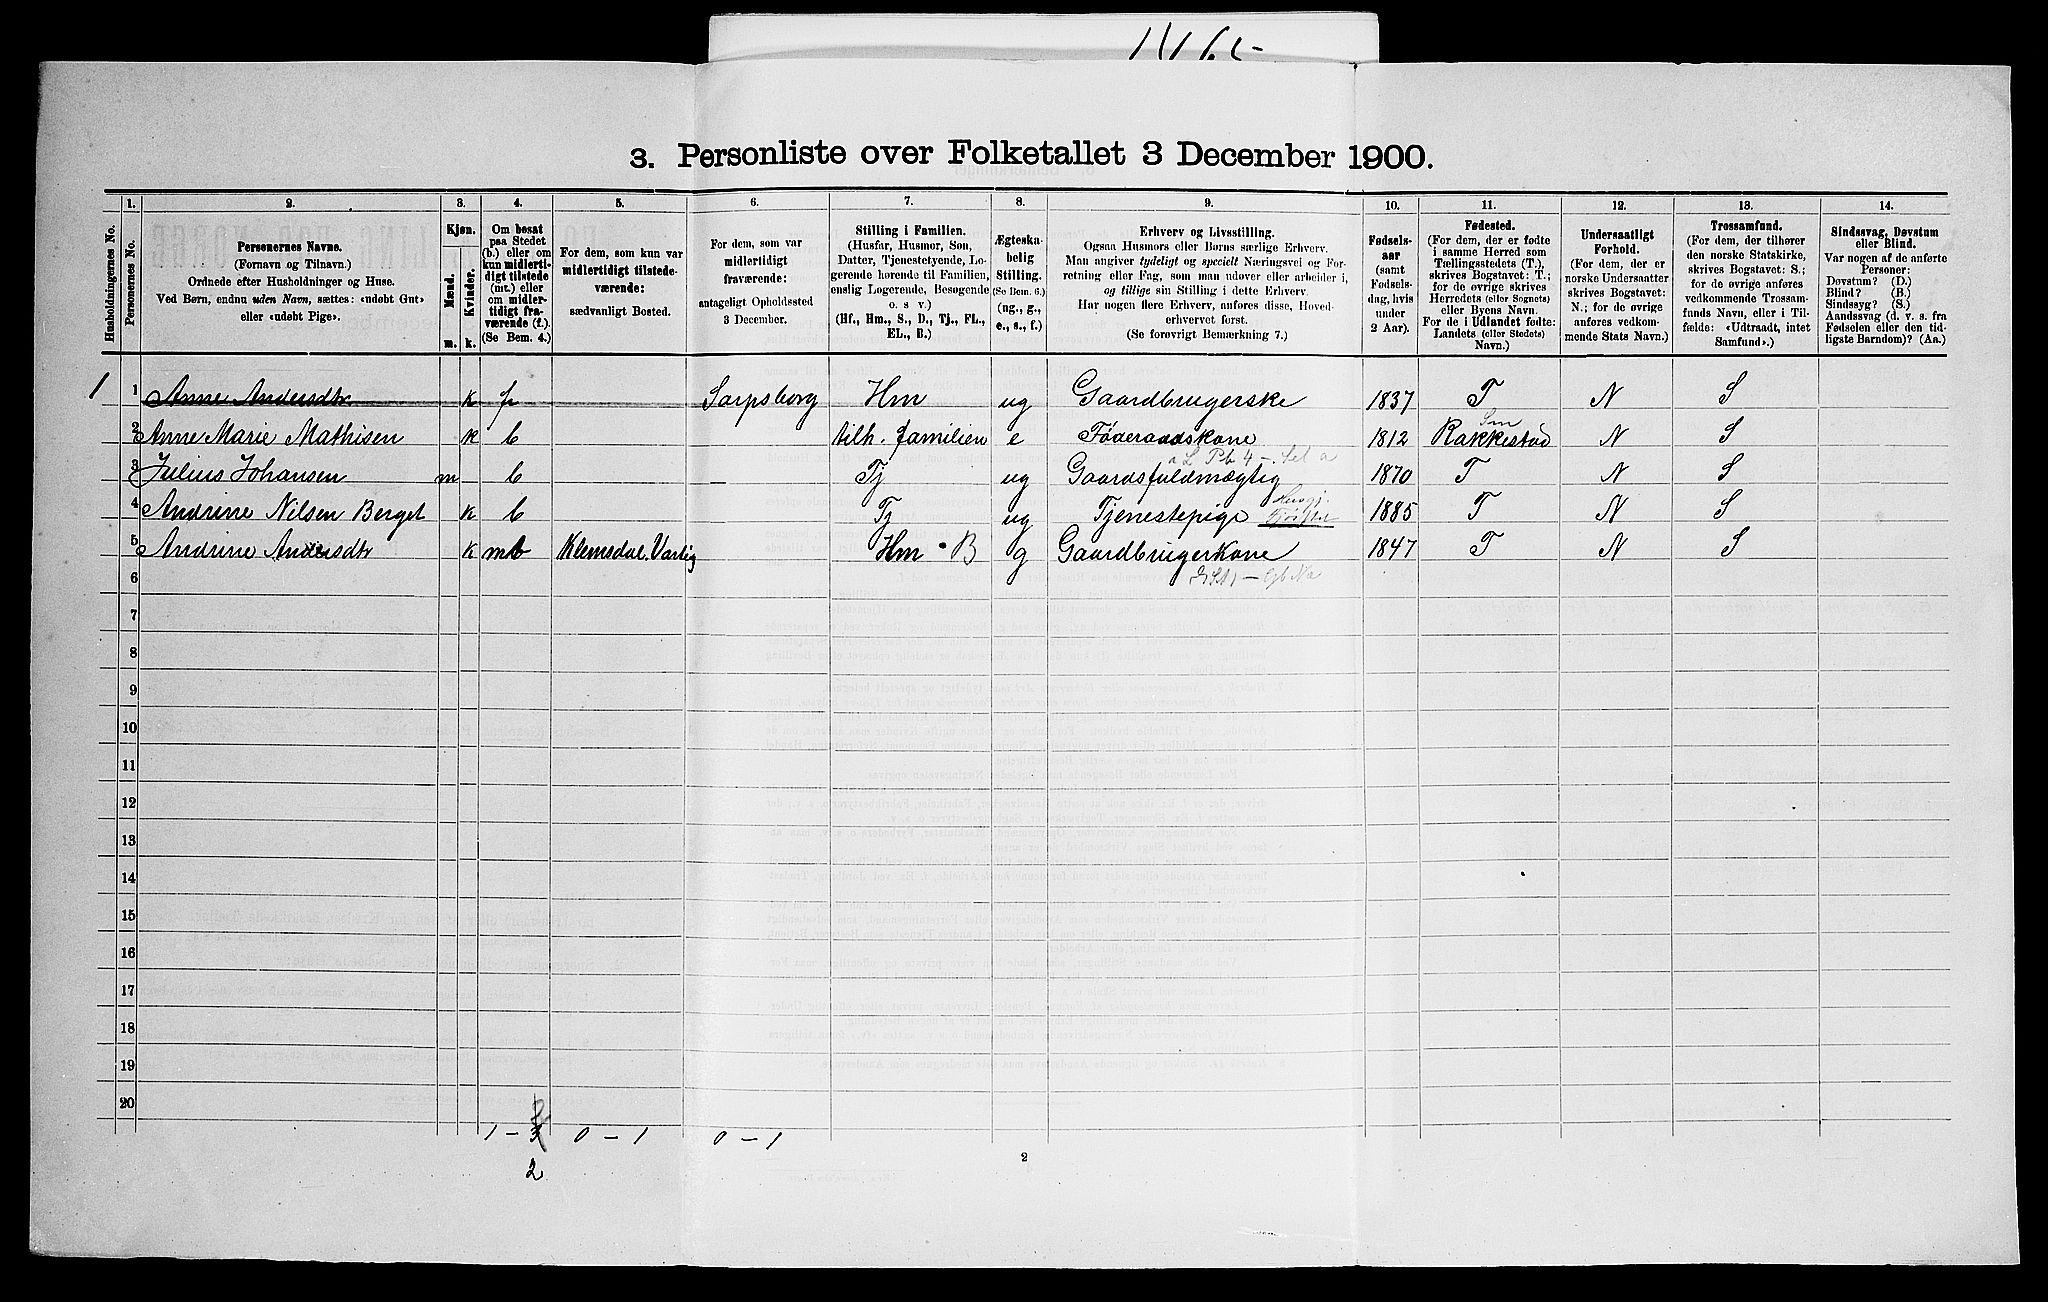 3. Personliste over Folketallet 3 December 1900.
1. 2. 3. 4. 5. 6. 7. 8. 9. 10. 11. 12. 13. 14.
Husholdningernes No.
Personernes No.
Personernes Navne.
(Fornavn og Tilnavn.)
Ordnede efter Husholdninger og Huse.
Ved Børn, endnu uden Navn, sættes: «udøbt Gut»
eller «udøbt Pige».
Kjøn.
Mænd.
Kvinder.
m. k.
Om bosat
paa Stedet
(b.) eller om
kun midlerti-
digt tilstede
(mt.) eller
om midler-
tidigt fra-
værende (f.).
(Se Bem. 4.)
For dem, som kun var
midlertidigt tilstede-
værende:
sædvanligt Bosted.
For dem, som var
midlertidigt
fraværende:
antageligt Opholdssted
3 December.
Stilling i Familien.
(Husfar, Husmor, Søn,
Datter, Tjenestetyende, Lo-
gerende hørende til Familien,
enslig Logerende, Besøgende
o. s v.)
(Hf., Hm., S., D., Tj., FL.,
EL., B.)
Ægteska-
belig
Stilling.
(Se Bem. 6.)
(ug., g.,
e., s., f.)
Erhverv og Livsstilling.
Ogsaa Husmors eller Børns særlige Erhverv.
Man angiver tydeligt og specielt Næringsvei og For-
retning eller Fag, som man udøver eller arbeider i,
og tillige sin Stilling i dette Erhverv.
Har nogen flere Erhverv, anføres disse, Hoved-
erhvervet først.
(Se forøvrigt Bemærkning 7.)
Fødsels-
aar
(samt
Fødsels-
dag, hvis
under
2 Aar).
Fødested.
(For dem, der er fødte
i samme Herred som
Tællingsstedets (T.),
skrives Bogstavet: T.;
for de øvrige skrives
Herredets (eller Sognets)
eller Byens Navn.
For de i Udlandet fødte:
Landets (eller Stedets)
Navn.)
Undersaatligt
Forhold.
(For dem, der er
norske Undersaatter
skrives Bogstavet:
N.; for de øvrige
anføres vedkom-
mende Stats Navn.)
Trossamfund.
(For dem, der tilhører
den norske Statskirke,
skrives Bogstavet: S.;
for de øvrige anføres
vedkommende Trossam-
funds Navn, eller i Til-
fælde: «Udtraadt, intet
Samfund».)
Sindssvag, Døvstum
eller Blind.
Var nogen af de anførte
Personer:
Døvstum? (D.)
Blind? (B.)
Sindssyg? (S.)
Aandssvag (d. v. s. fra
Fødselen eller den tid-
ligste Barndom)? (Aa.)
1 1 Anne Andersdtr k f Sarpsborg Hm ug Gaardbrugerske 1837 T N S
2 Anne Marie Mathisen k b tilh. familien e Føderaadskone 1812 Rakkestad Sm N S
3 Julius Johansen m b Tj ug Gaardsfuldmægtig 1870 T N S
4 Andrine Nilsen Berget k b Tj ug Tjenestepige 1885 T N S
5 Andrine Andersdtr k mt Klemsdal. Varteig Hm B g Gaardbrugerkone 1847 T N S
6
7
8
9
10
11
12
13
14
15
16
17
18
19
20
1 – 3 0 – 1 0 – 1
2
2